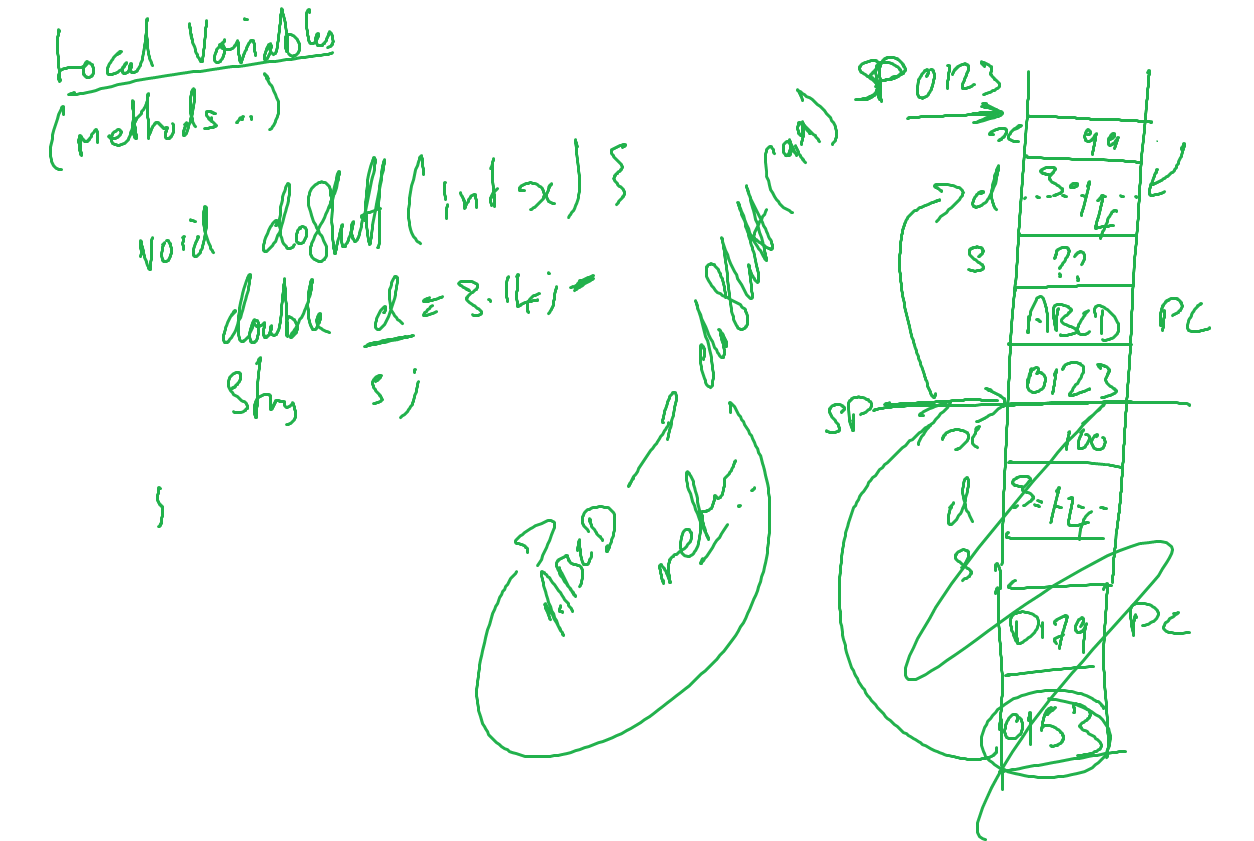 Local Variables
(methods..)
void doStuff(int x) {
double d = 3.14;
Strng s;
}
ABCD
doStuff(99)
return..
SP 0123
x 99
d 3.14
s ??
ABCD PC
0123
SP
x 100
d 3.14
s
D179 PC
0153